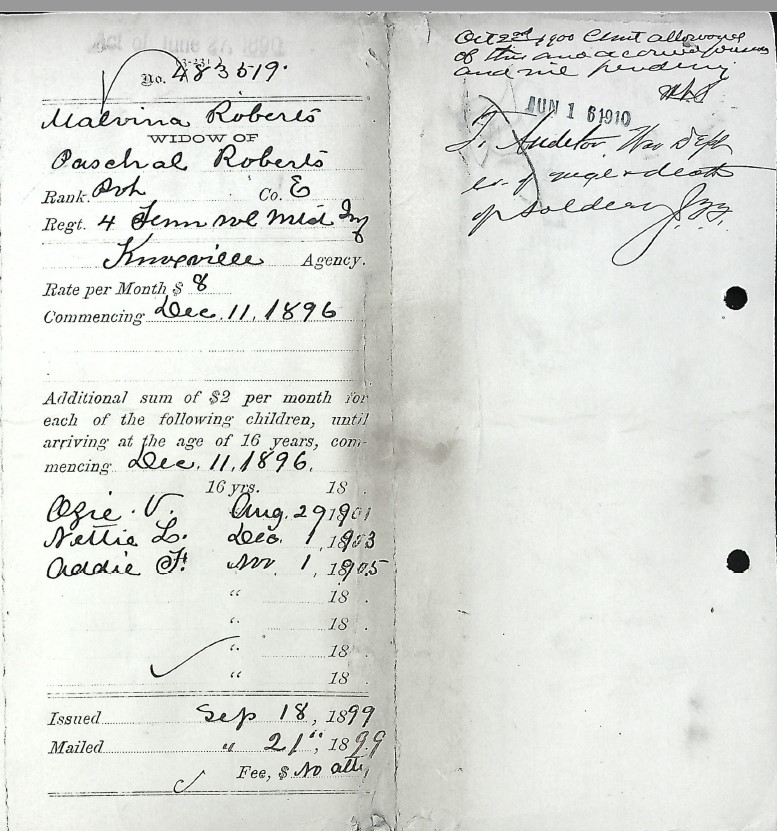 Act of June 27, 1890
(3-331)
No. 483519.
Malvina Roberts
WIDOW OF
Paschal Roberts
Rank. Pvt Co. E
Regt. 4 Tenn vol Mtd Inf
Knoxville Agency.
Rate per Month $ 8
Commencing Dec. 11, 1896
Additional sum of $2 per month for
each of the following children, until
arriving at the age of 16 years, com-
mencing Dec. 11, 1896.
16 yrs. 18 .
Ozie V. Aug. 29 1901
Nettie L. Dec. 1, 1903
Addie F. Nov 1, 1905
" 18 .
" 18 .
" 18 .
" 18 .
Issued Sep 18, 1899
Mailed " 21", 1899
Fee, $ No atty
Oct 22nd 1900
of this and
and pending
JUN 16 1910
To Auditor War Dept
of death
of soldier